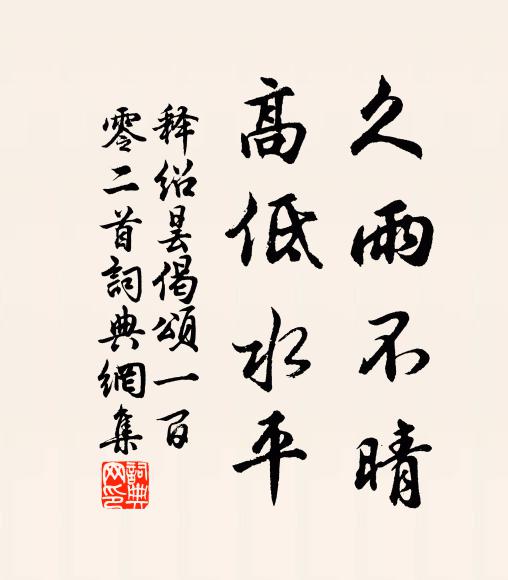 久雨不晴
高低水平
释绍昙偈颂一百
零二首詞典網集
詞典
网印